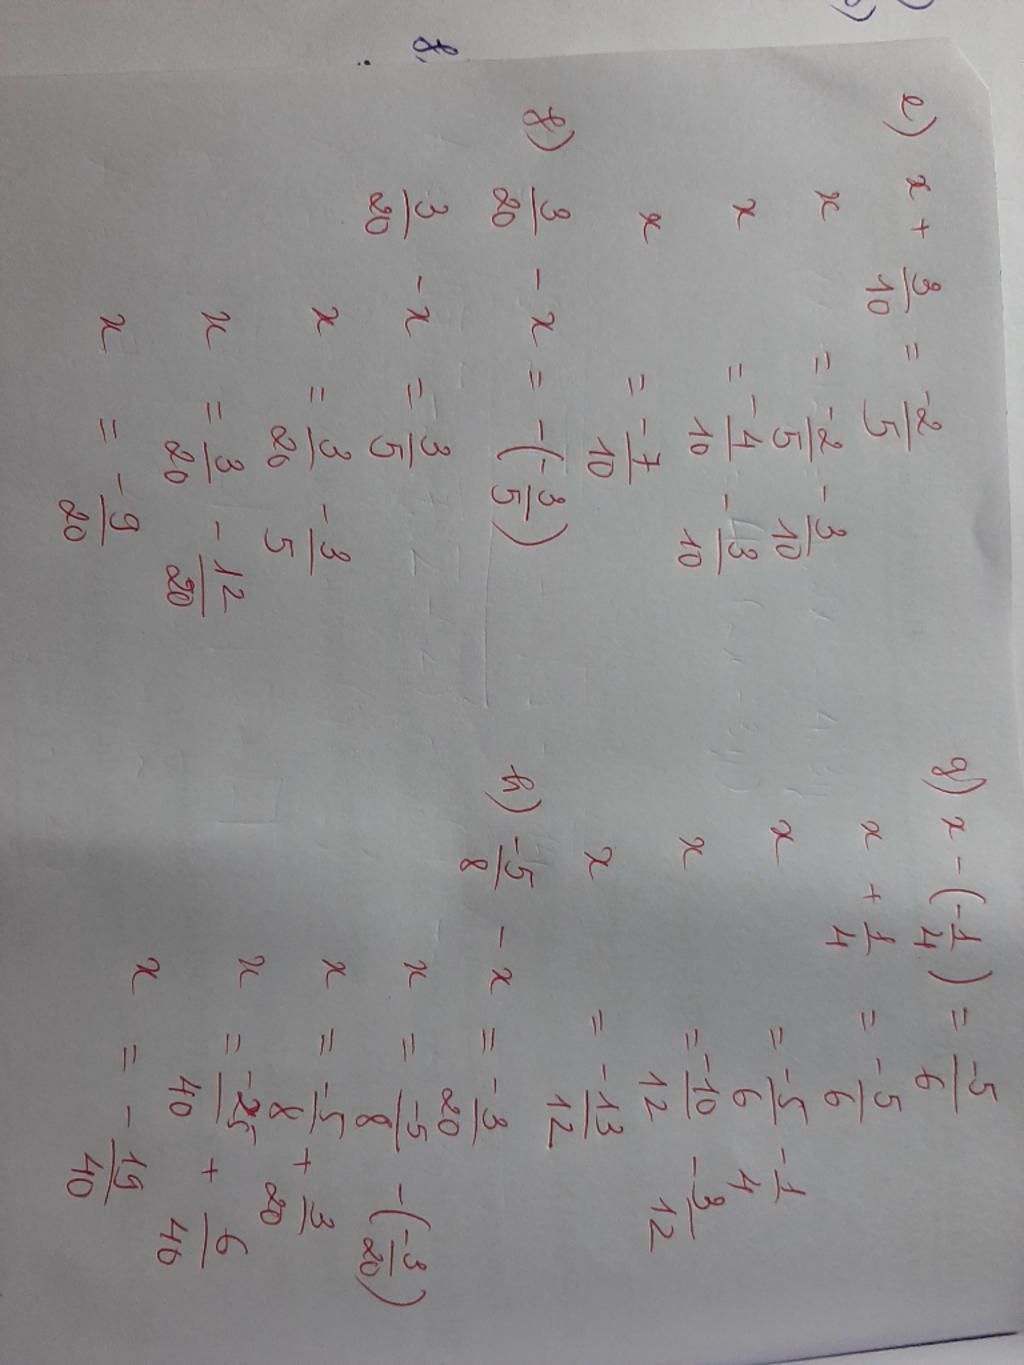 e) x + 3/10 = -2/5
x = -2/5 - 3/10
x = -4/10 - 3/10
x = -7/10
f) 3/20 - x = -(-3/5)
3/20 - x = 3/5
x = 3/20 - 3/5
x = 3/20 - 12/20
x = -9/20
g) x - (-1/4) = -5/6
x + 1/4 = -5/6
x = -5/6 - 1/4
x = -10/12 - 3/12
x = -13/12
h) -5/8 - x = -3/20
x = -5/8 - (-3/20)
x = -5/8 + 3/20
x = -25/40 + 6/40
x = -19/40